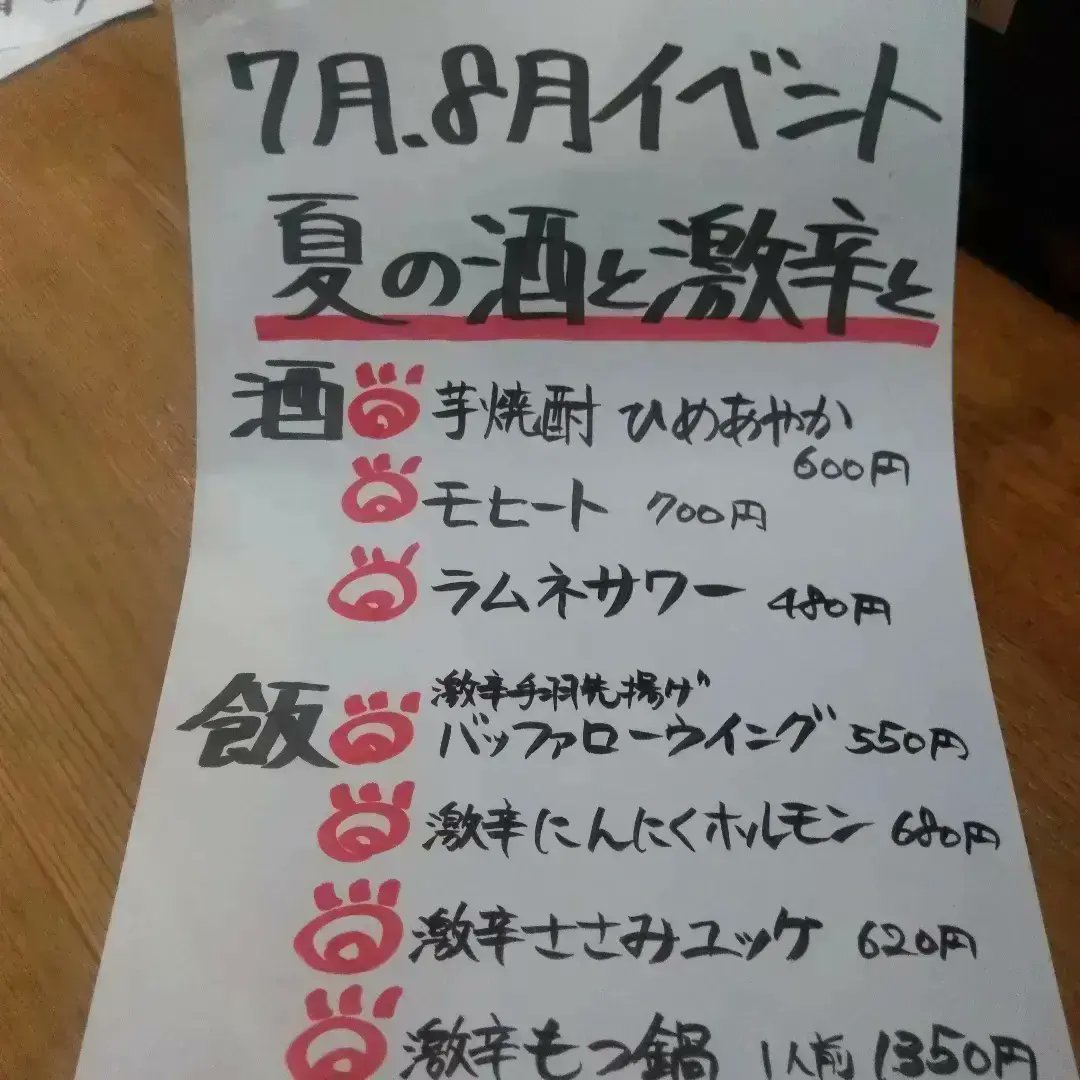 7月.8月イベント
夏の酒と激辛と
酒 芋焼酎 ひめあやか
600円
モヒート 700円
ラムネサワー 480円
激辛手羽先揚げ
飯 バッファローウイング 550円
激辛にんにくホルモン 680円
激辛ささみユッケ 620円
激辛もつ鍋 1人前 1350円